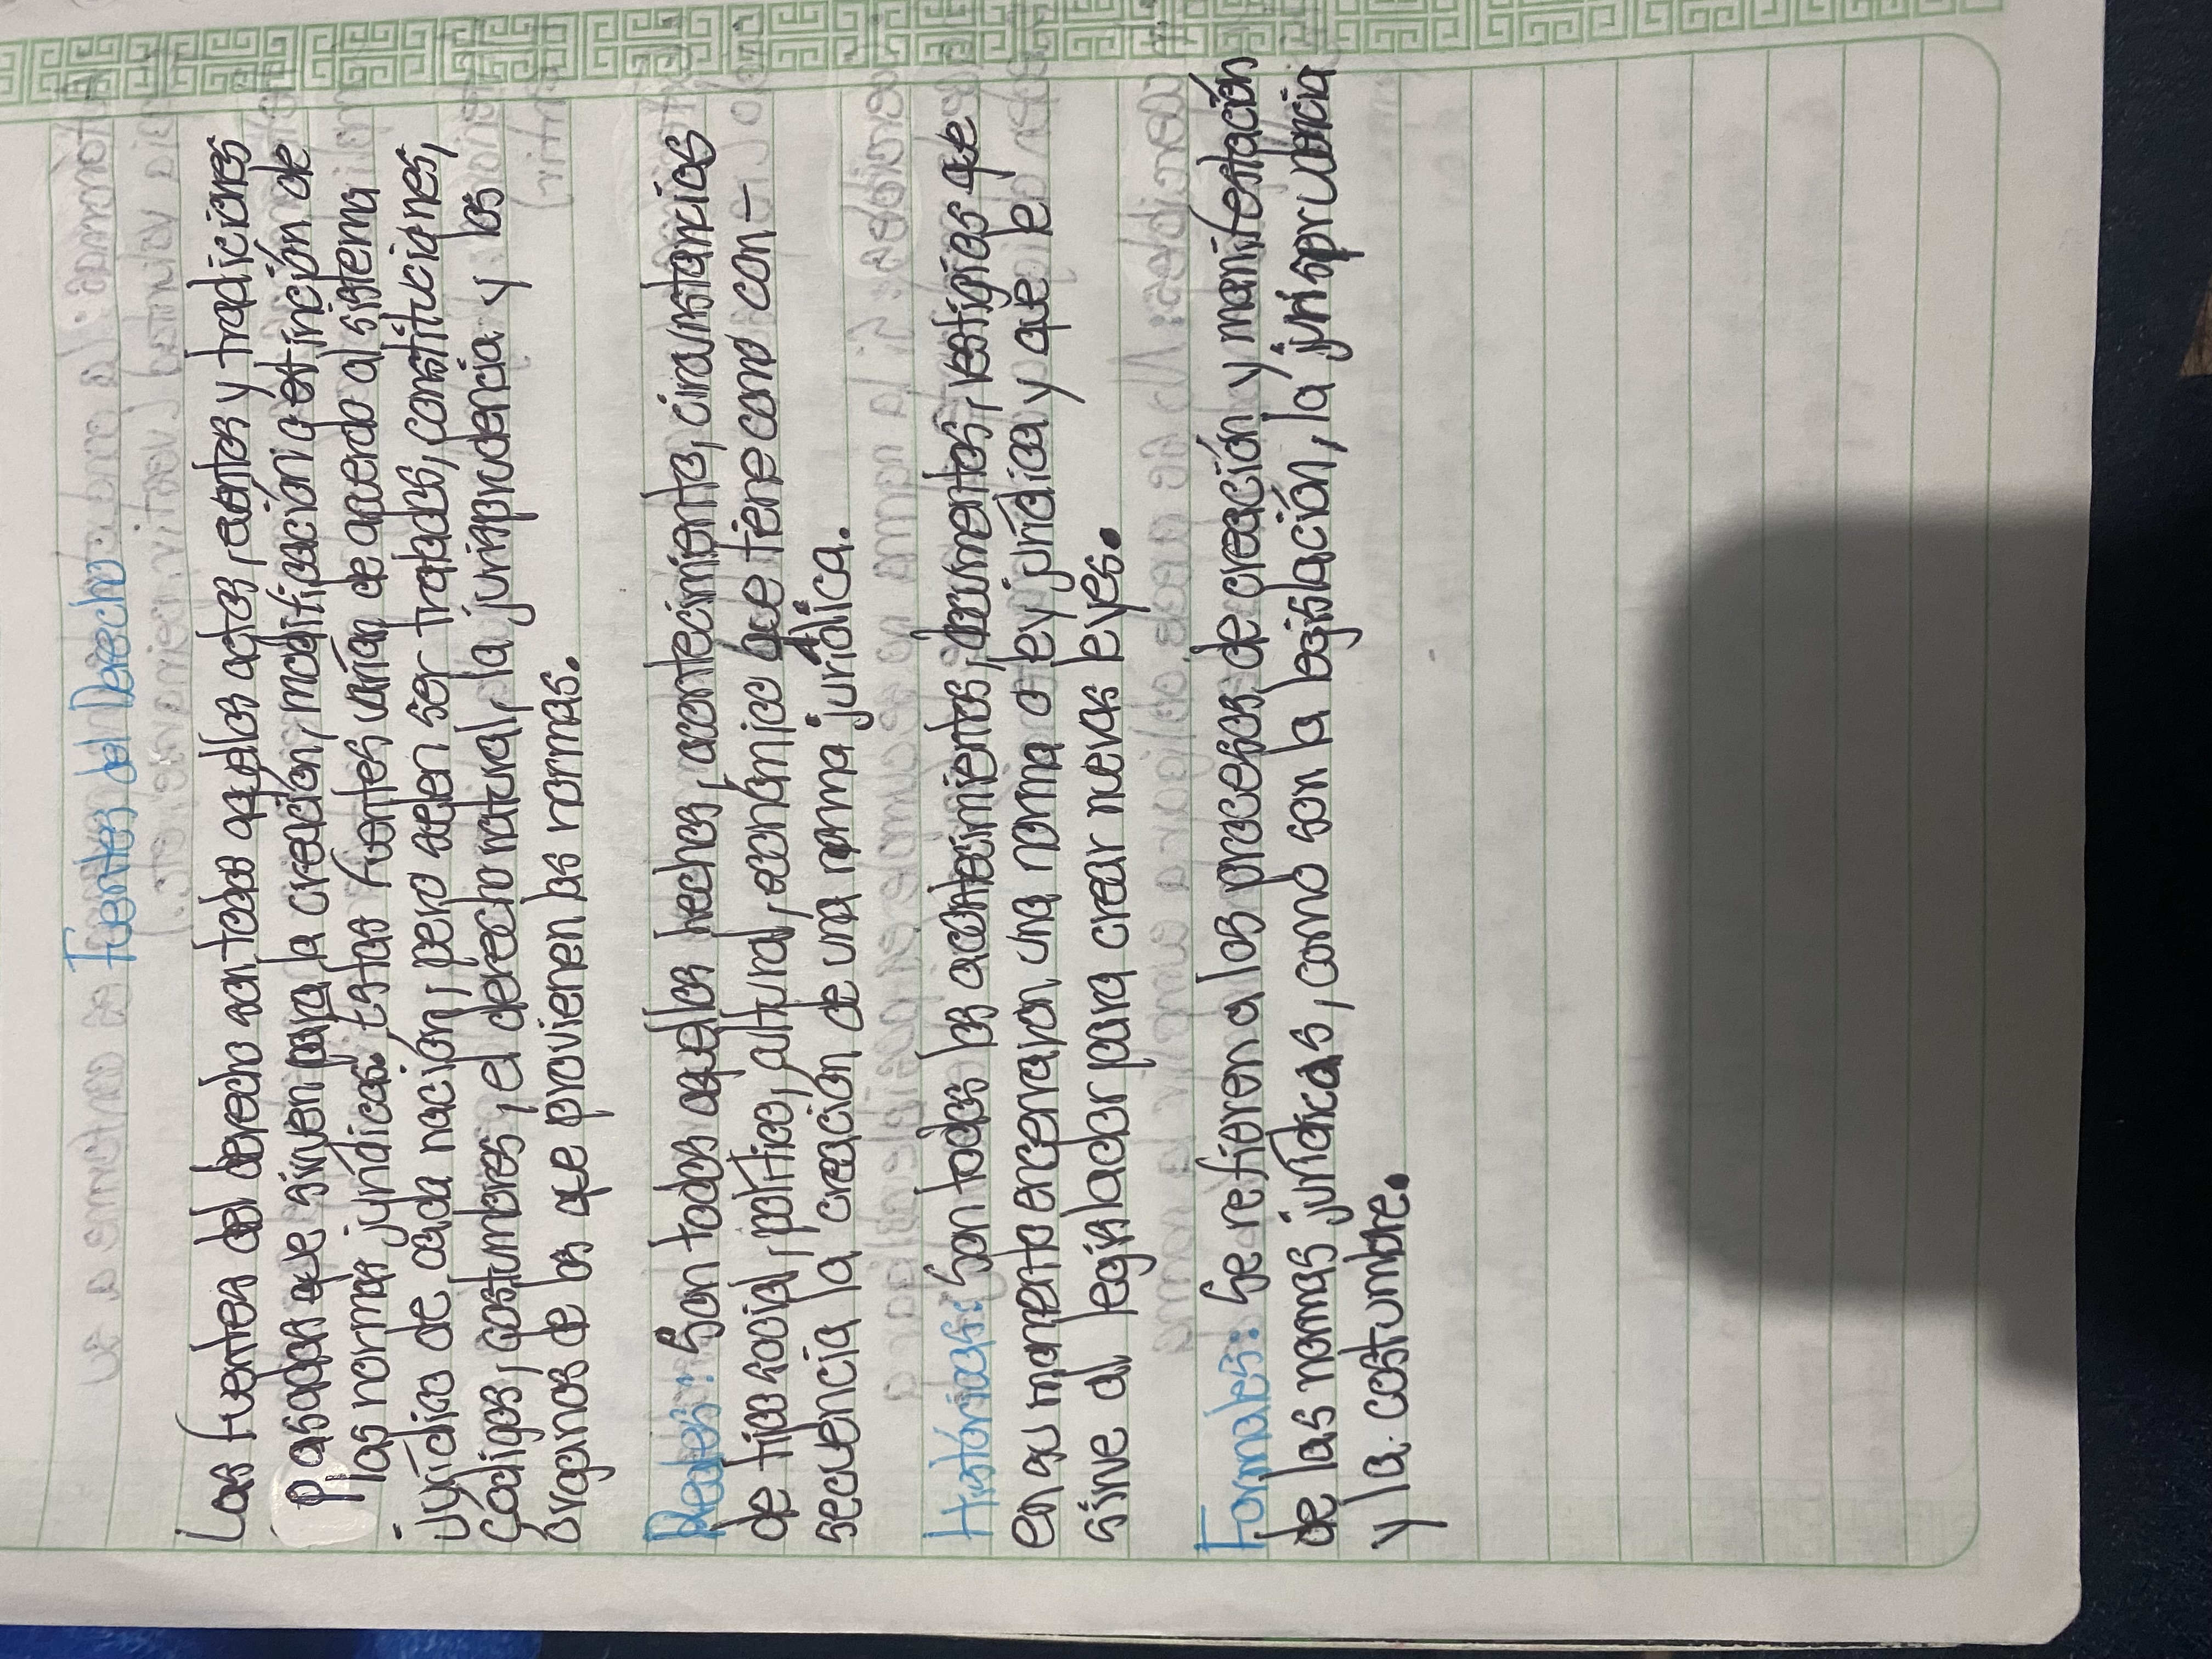 Fuentes del Derecho
Las fuentes del derecho son todos aquellos actos, eventos y tradiciones
pasadas que sirven para la creación, modificación o extinción de
las normas jurídicas. Estas fuentes varían de acuerdo al sistema
jurídico de cada nación, pero suelen ser tratados, constituciones,
códigos, costumbres, el derecho natural, la jurisprudencia y los
órganos de los que provienen las normas.
Reales: Son todos aquellos hechos, acontecimiento, circunstancias
de tipo social, político, cultural, económico que tiene como con-
secuencia la creación de una norma jurídica.
Históricas: Son todos los acontecimientos, documentos, vestigios que
en su momento encerraron una norma o ley jurídica y que le
sirve al legislador para crear nuevas leyes.
Formales: Se refieren a los procesos de creación y manifestación
de las normas jurídicas, como son la legislación, la jurisprudencia
y la costumbre.